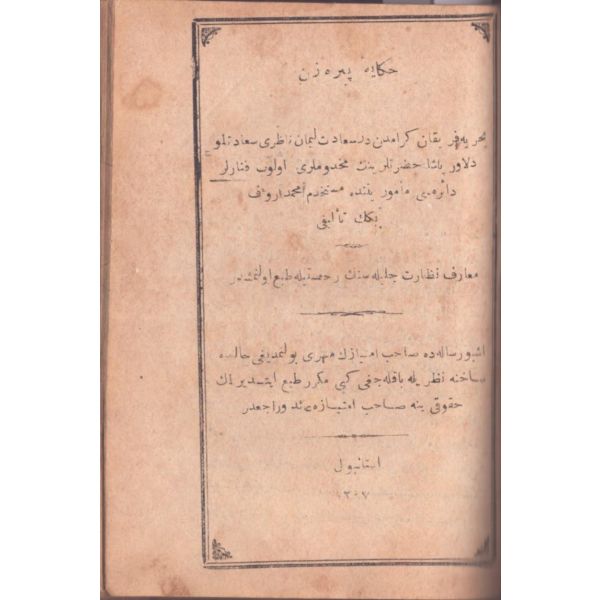 حكايهٔ پيره زن
بحريه فريقان كرامندن درسعادت ليمان ناظرى سعادتلو
دلاور پاشا حضرتلرينك مخدوملرى اولوب فنارلر
دائره‌سى مأموريتنده مستخدم محمد رؤف
بكك تأليفى
معارف نظارت جليله سنك رخصتيله طبع اولنمشدر
اشبو رساله ده صاحب امتيازك مهرى بولنمديغى حالده
ساخته نظريله باقيله جغى كبى مكرر طبع ايتديرمك
حقوقى ينه صاحب امتيازه عائد وراجعدر
استانبول
١٣٠٧